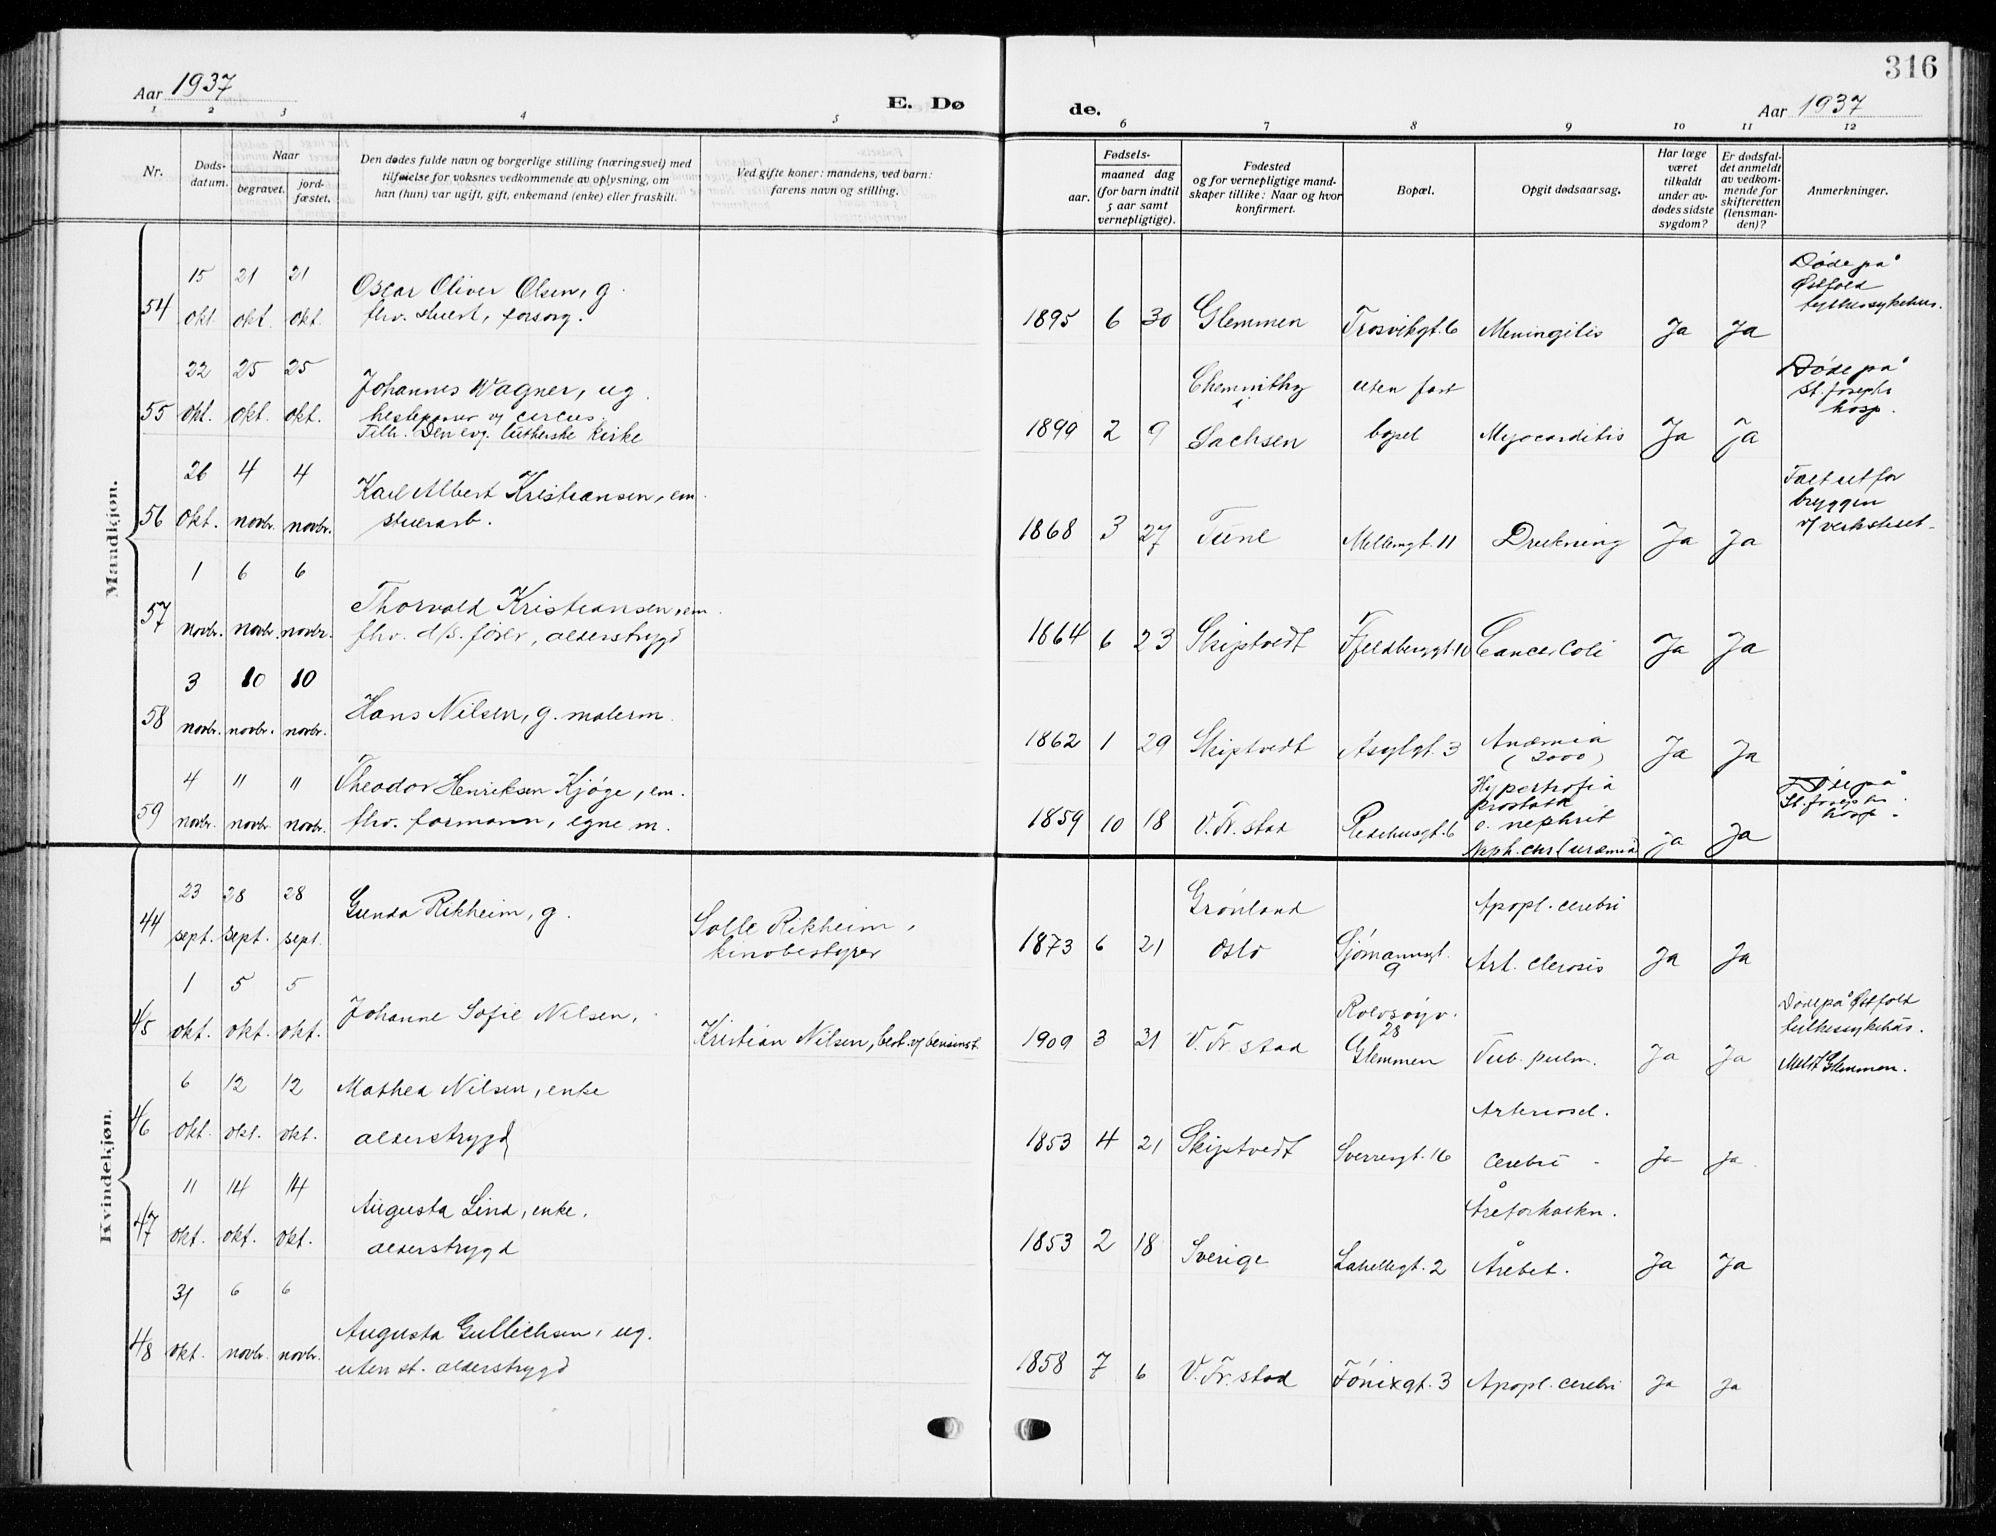 316
Aar 1937
E. Dø
de.
Aar 1937
1 2 3 4 5 6 7 8 9 10 11 12
Nr.
Døds-
datum.
Naar
begravet.
jord-
fæstet.
Den dødes fulde navn og borgerlige stilling (næringsvei) med
tilføielse for voksnes vedkommende av oplysning, om
han (hun) var ugift, gift, enkemand (enke) eller fraskilt.
Ved gifte koner: mandens, ved barn:
farens navn og stilling.
Fødsels-
aar.
maaned dag
(for barn indtil
5 aar samt
vernepligtige).
Fødested
og for vernepligtige mand-
skaper tillike: Naar og hvor
konfirmert.
Bopæl.
Opgit dødsaarsag.
Har læge
været
tilkaldt
under av-
dødes sidste
sygdom?
Er dødsfal-
det anmeldt
av vedkom-
mende for
skifteretten
(lensman-
den)?
Anmerkninger.
Mandkjøn.
54
15 okt.
21 okt.
21 okt.
Oscar Oliver Olsen, g.
fhv. stuert, forsorg.
1895 6 30
Glemmen
Trosvikgt. 6
Meningitis
Ja
Ja
Døde på
Østfold
55
22 okt.
25 okt.
25 okt.
Johannes Wagner, ug.
hestepasser v/ circus.
Tilh. Den evg. lutherske kirke
1899 2 9
Chemnitz
i
Sachsen
uten fast
bopel
Myocarditis
Ja
Ja
Døde på
St. Josephs
hosp.
56
26 okt.
4 novbr.
4 novbr.
Karl Albert Kristiansen, em.
stuerarb.
1868 3 27
Tune
Mellemgt. 11
Drukning
Ja
Ja
Falt ut for
bryggen
v/ verkstedet
57
1 novbr.
6 novbr.
6 novbr.
Thorvald Kristiansen, em.
fhv. d/s. fører, alderstrygd
1864 6 23
Skiptvedt
Fjeldberggt. 10
Cancer Coli
Ja
Ja
58
3 novbr.
10 novbr.
10 novbr.
Hans Nilsen, g. malerm.
1862 1 29
Skiptvedt
Asylgt. 3
Anæmia
Ja
Ja
59
4 novbr.
11 novbr.
11 novbr.
Theodor Henriksen Kjøge, em.
fhv. formann, egne m.
1859 10 18
V. Fr. stad
Hypertrofia
prostata
c. nephrit
Ja
Ja
Døde på
St. Josephs
hosp.
Kvindekjøn.
44
23 sept.
28 sept.
28 sept.
Gunda Rikheim, g.
Salle Rikheim,
kinobestyrer
1873 6 21
Grønland
Oslo
Sjømannsgt.
9
Apopl. cerebri
Art. clerosis
Ja
Ja
45
1 okt.
5 okt.
5 okt.
Johanne Sofie Nilsen,
Kristian Nilsen, best. v/ bensinst.
1909 3 21
V. Fr. stad
Rolvsøyv.
28
Glemmen
Tub. pulm.
Ja
Ja
Døde på Østfold
tuberkulosesykehus.
Meldt Glemmen.
46
6 okt.
12 okt.
12 okt.
Mathea Nilsen, enke
alderstrygd
1853 4 21
Skiptvedt
Sverresgt. 16
Arterioscl.
cerebri
Ja
Ja
47
11 okt.
14 okt.
14 okt.
Augusta Lind, enke.
alderstrygd
1853 2 18
Sverige
Lahellegt. 2
Åreforkalkn.
Årebet.
Ja
Ja
48
31 okt.
6 novbr.
6 novbr.
Augusta Gullichsen, ug.
uten st. alderstrygd
1858 7 6
V. Fr. stad
Fønixgt. 3
Apopl. cerebri
Ja
Ja